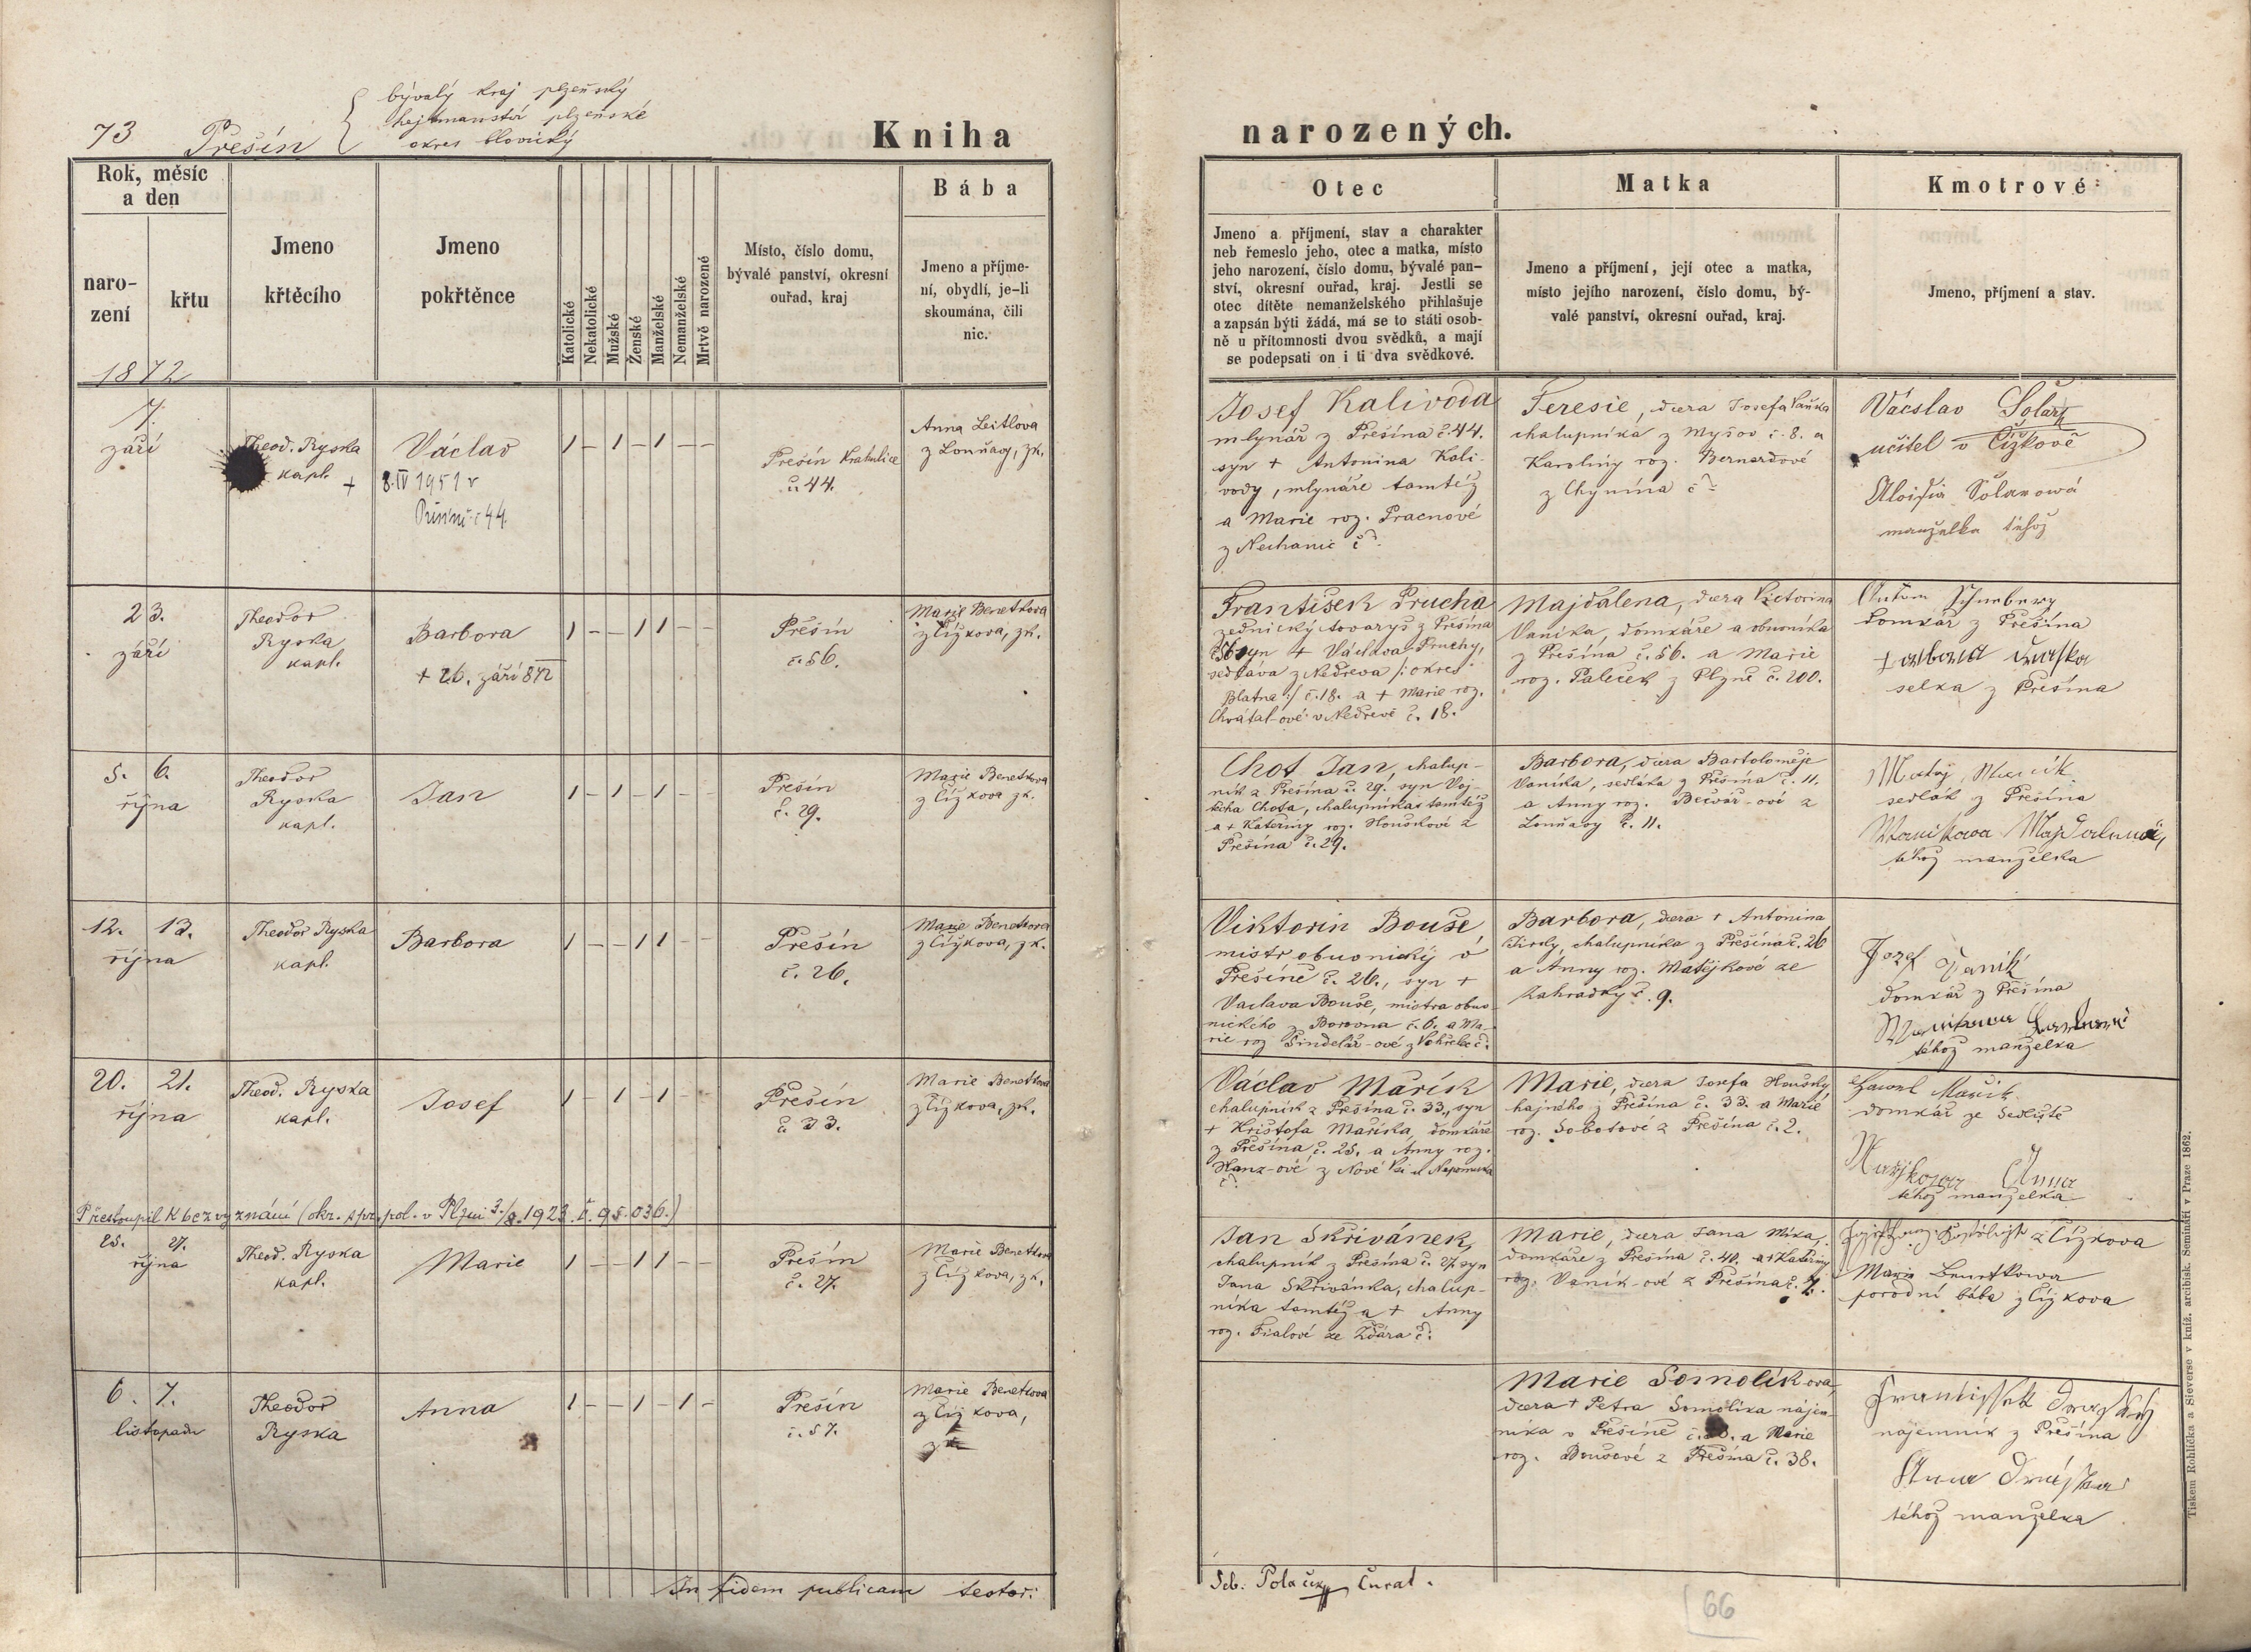 73 Přešín
bývalý kraj plzeňský
hejtmanství plzeňské
okres blovický
Kniha
narozených.
Rok, měsíc
a den
naro-
zení
křtu
1872
Jmeno
křtěcího
Jmeno
pokřtěnce
Katolické
Nekatolické
Mužské
Ženské
Manželské
Nemanželské
Mrtvě narozené
Místo, číslo domu,
bývalé panství, okresní
ouřad, kraj
Bába
Jmeno a příjme-
ní, obydlí, je-li
skoumána, čili
nic.
Otec
Jmeno a příjmení, stav a charakter
neb řemeslo jeho, otec a matka, místo
jeho narození, číslo domu, bývalé pan-
ství, okresní ouřad, kraj. Jestli se
otec dítěte nemanželského přihlašuje
a zapsán býti žádá, má se to státi osob-
ně u přítomnosti dvou svědků, a mají
se podepsati on i ti dva svědkové.
Matka
Jmeno a příjmení, její otec a matka,
místo jejího narození, číslo domu, bý-
valé panství, okresní ouřad, kraj.
Kmotrové
Jmeno, příjmení a stav.
7.
září
Theod. Ryska
kapl.
Václav
+ 8.IV 1951 v
č 44.
1 – 1 – 1 – –
Přešín
č. 44.
Anna Leitlova
z Louňag, zk.
Josef Kalivoda
mlynář z Přešína č. 44.
syn + Antonina Kali-
vody, mlynáře tamtéž
a Marie roz. Pracnové
z Nechanic č
Teresie, dcera Josefa
chalupníka z Myšov č. 8. a
Karoliny roz. Bernardové
z Chynína č
Vácslav Solar
učitel v Čížkově
Aloisia Solarowá
manželka téhož
23.
září
Theodor
Ryska
kapl.
Barbora
+ 26. září 872
1 – – 1 1 – –
Přešín
č. 56.
Marie Benetkova
z Čížkova, zk.
František Průcha
zednický tovaryš z Přešína
56 syn + Václava Pruchy,
sedláva z Nedřeva /: okres
Blatna :/ č. 18. a + Marie roz.
Chvátal-ové v Nedřevě č. 18.
Majdalena, dcera Victorina
Vaníka, domkáře a obuvníka
z Přešína č. 56. a Marie
roz. Paleček z Plzně č. 200.
domkář z Přešína
selka z Přešína
5. 6.
října
Theodor
Ryska
kapl.
Jan
1 – 1 – 1 – –
Přešín
č. 29.
Marie Benetkova
z Čížkova zk.
Chot Jan, chalup-
ník z Přešína č. 29. syn Voj-
těcha Chota, chalupníka tamtéž
a + Kateřiny roz. Houškové z
Přešína č. 29.
Barbora, dcera Bartoloměje
Vaníka, sedláka z Přešína č. 11.
a Anny roz. Bečvář-ové z
Louňavy č. 11.
Matěj
sedlák z Přešína
téhož manželka
12. 13.
října
Theodor Ryska
kapl.
Barbora
1 – – 1 1 – –
Přešín
č. 26.
Marie Benetkova
z Čížkova, zk.
Viktorin Bouše
mistr obuvnický v
Přešíně č. 26., syn +
Vaclava Bouše, mistra obuv-
nického z Borovna č. 6. a Ma-
rie roz Šindelář-ové z
Barbora, dcera + Antonina
chalupníka z Přešína č. 26
a Anny roz. Matějkové ze
Zahradky č. 9.
Jozef Vaník
domkář z Přešína
téhož manželka
20. 21.
října
Theod. Ryska
kapl.
Josef
1 – 1 – 1 – –
Přešín
č. 33.
Marie Benetkova
z Čížkova, zk.
Václav Mařík
chalupník z Přešína č. 33., syn
+ Kristofa Maříka, domkáře
z Přešína č. 25. a Anny roz.
Hanz-ové z Nové Vsi u Nepomuka
č.
Marie, dcera Josefa Houšky
hajného z Přešína č. 33. a Marie
roz. Sobotové z Přešína č. 2.
Mařík
domkář ze Sedliště
Anna
téhož manželka
Přestoupil k bez vyznání (okr. spr. pol. v Plzni 3./8. 1923 č. 95.036.)
25. 27.
října
Theod. Ryska
kapl.
Marie
1 – – 1 1 – –
Přešín
č. 27.
Marie Benetkova
z Čížkova, zk.
Jan Skřivánek,
chalupník z Přešína č. 27 syn
Jana Skřivánka, chalup-
níka tamtéž a + Anny
roz. Fialové ze Ždára č.
Marie, dcera Jana Míka,
domkáře z Přešína č. 40. a + Kateřiny
roz. Vaník-ové z Přešína č. 7.
z Čížkova
Marie Benetkowa
porodní bába z Čížkova
6. 7.
listopadu
Theodor
Ryska
Anna
1 – – 1 – 1 –
Přešín
č. 57.
Marie Benetkova
z Čížkova,
zk
Marie Somolík-ova,
dcera + Petra Somolíka nájem-
níka v Přešíně č. a Marie
roz. Boušové z Přešína č. 38.
Frantissek
nájemník z Přešína
Anna
téhož manželka
In fidem publicam testor:
Seb: Polaček, Curat.
66
Tiskem Rohlíčka a Sieverse v kníž. arcibisk. Semináři v Praze 1862.